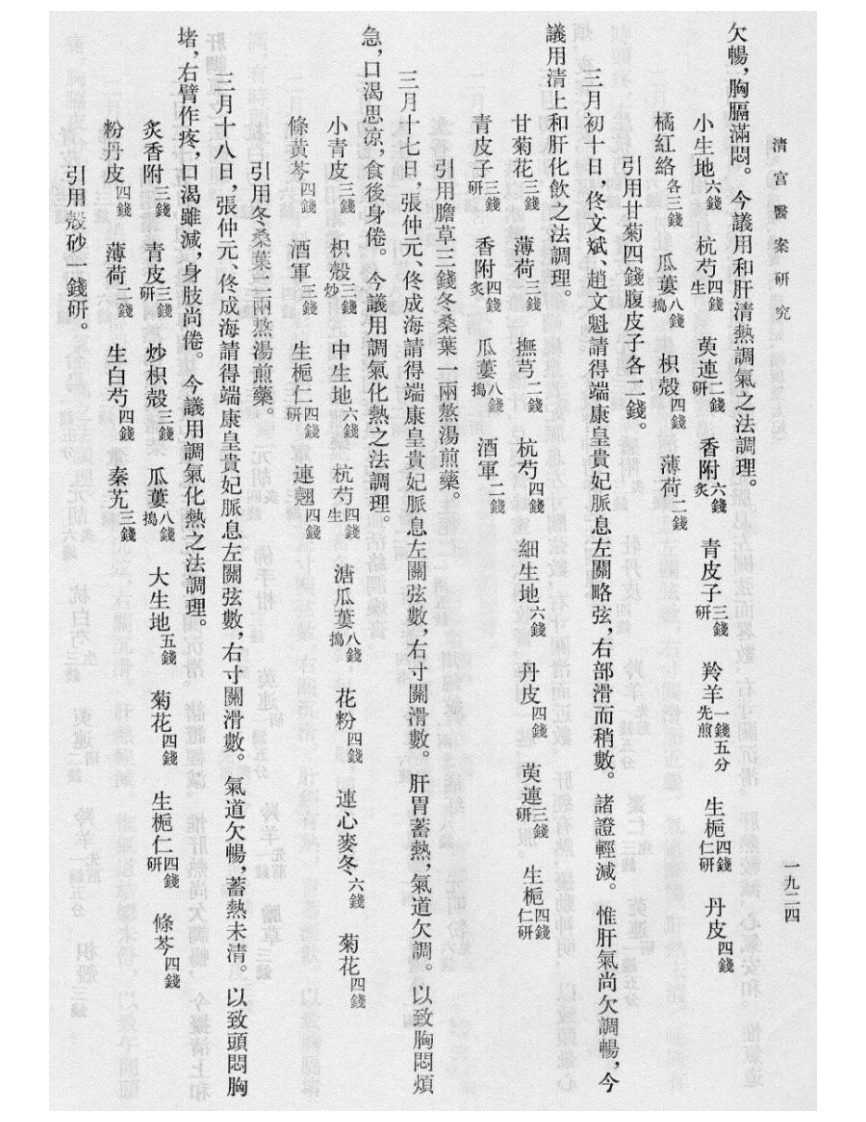 清宮醫案研究
一九二四
欠暢，胸膈滿悶。今議用和肝清熱調氣之法調理。
小生地六錢 杭芍四錢生 萸連二錢研 香附六錢炙 青皮子三錢研 羚羊一錢五分先煎 生梔仁四錢研 丹皮四錢
橘紅絡各三錢 瓜蔞八錢搗 枳殼四錢 薄荷二錢
引用甘菊四錢腹皮子各二錢。
三月初十日，佟文斌、趙文魁請得端康皇貴妃脈息左關略弦，右部滑而稍數。諸證輕減。惟肝氣尚欠調暢，今
議用清上和肝化飲之法調理。
甘菊花三錢 薄荷三錢 撫芎二錢 杭芍四錢 細生地六錢 丹皮四錢 萸連三錢研 生梔仁四錢研
青皮子三錢研 香附四錢炙 瓜蔞八錢搗 酒軍二錢
引用膽草三錢冬桑葉一兩熬湯煎藥。
三月十七日，張仲元、佟成海請得端康皇貴妃脈息左關弦數，右寸關滑數。肝胃蓄熱，氣道欠調。以致胸悶煩
急，口渴思凉，食後身倦。今議用調氣化熱之法調理。
小青皮三錢 枳殼三錢炒 中生地六錢 杭芍四錢生 溏瓜蔞八錢搗 花粉四錢 連心麥冬六錢 菊花四錢
條黃芩四錢 酒軍三錢 生梔仁四錢研 連翹四錢
引用冬桑葉二兩熬湯煎藥。
三月十八日，張仲元、佟成海請得端康皇貴妃脈息左關弦數，右寸關滑數。氣道欠暢，蓄熱未清。以致頭悶胸
堵，右臂作疼，口渴雖減，身肢尚倦。今議用調氣化熱之法調理。
炙香附三錢 青皮三錢研 炒枳殼三錢 瓜蔞八錢搗 大生地五錢 菊花四錢 生梔仁四錢研 條芩四錢
粉丹皮四錢 薄荷二錢 生白芍四錢 秦艽三錢
引用殼砂一錢研。